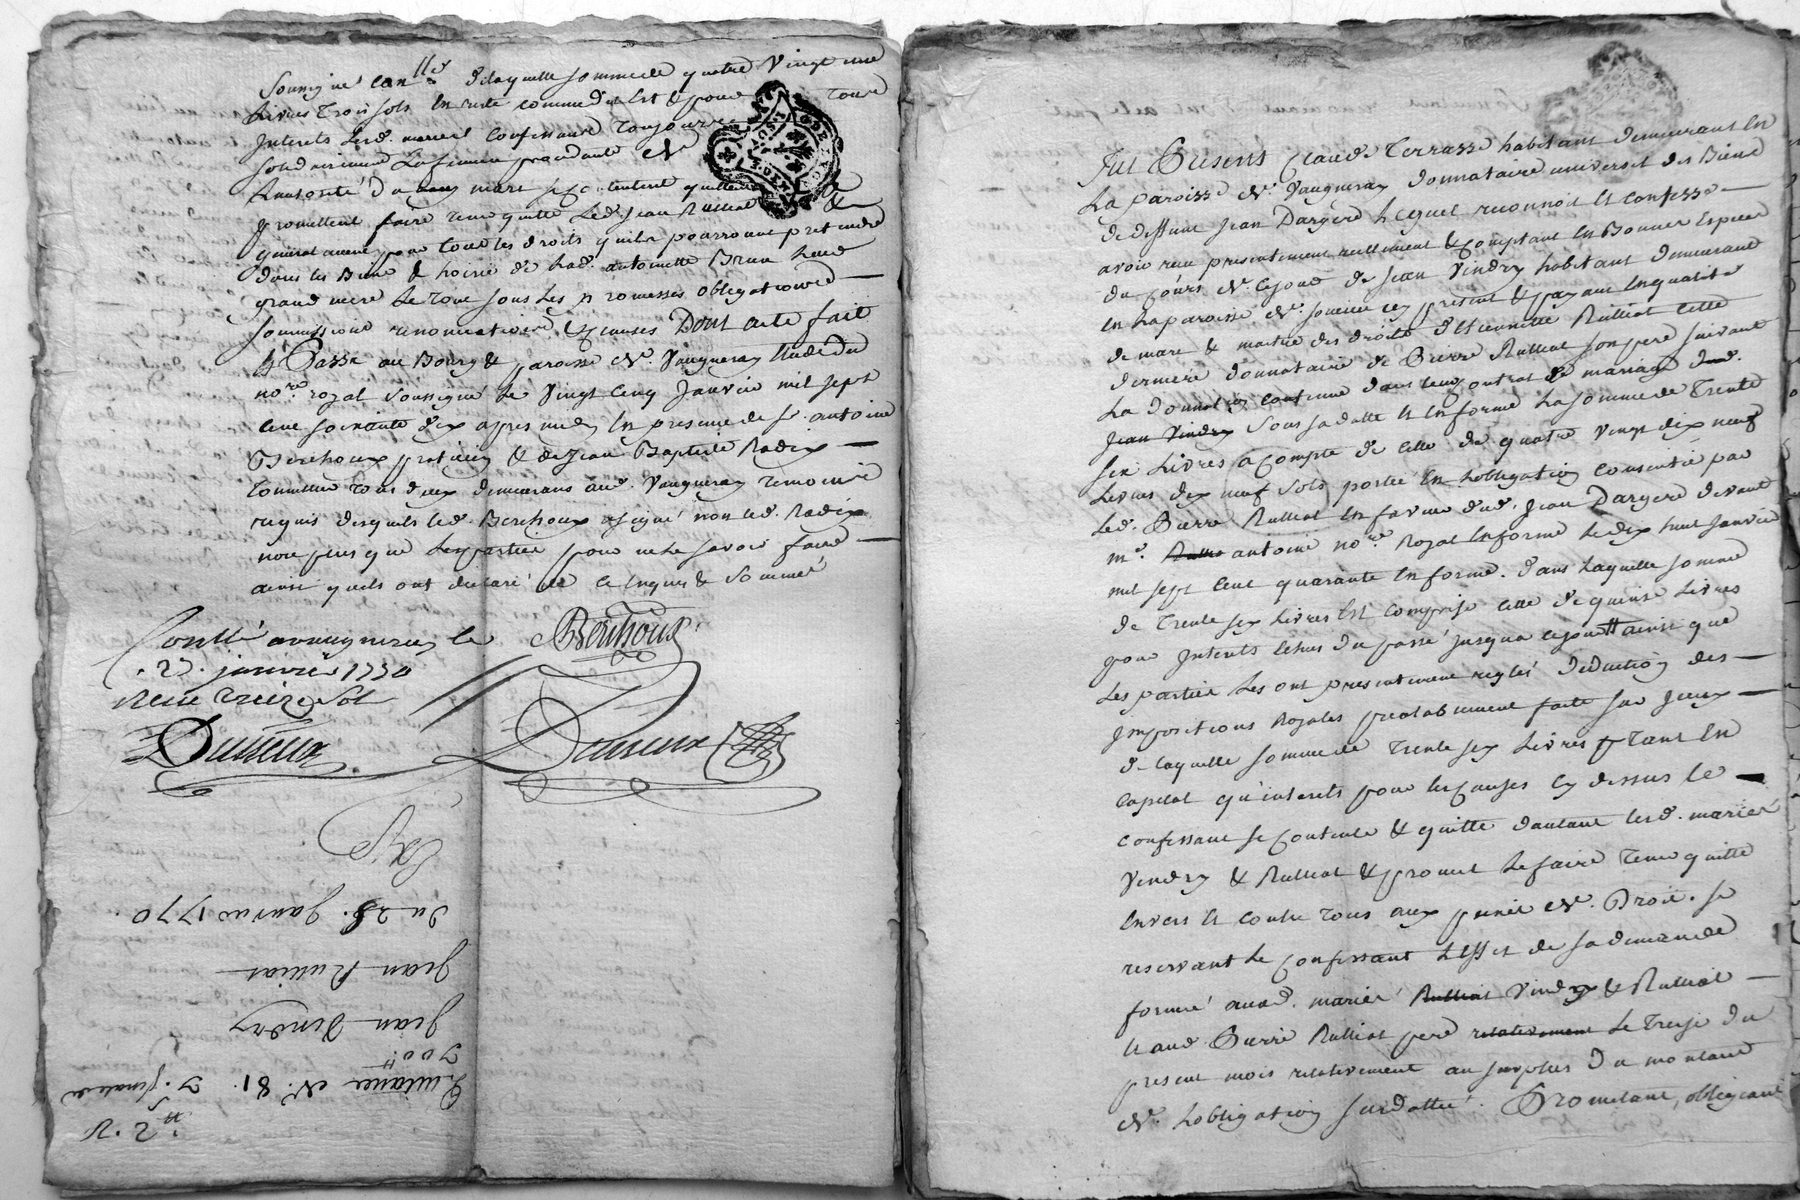 Soussigné de laquelle somme de quatre Vingt une
Livres Trois sols En reste comme dit Est & pour Tous
Interets Lesd. mariés Confessants Toujours
solidairement La femme procedante de
Lautorité du mary se contentent quittent &
promettent faire tenir quitte Led. Jean Rulliat
generalement pour tous les droits quils pourroient pretendre
dans les Biens & hoirie de Lad. antoinette Brun Leur
grand mere Le Tout sous Les promesses obligations
soumissions renonciations & clauses Dont acte fait
& Passé au Bourg & paroisse de Vaugneray Etude du
no.re royal soussigné Le Vingt Cinq Janvier mil sept
cent soixante dix apres midy En presence de S.r antoine
Berthoux praticien & de Jean Baptiste Radix
Tonnellier tous deux demeurans aud. Vaugneray Temoins
requis desquels led. Berthoux a signé non led. Radix
non plus que Les parties pour ne Le savoir faire
ainsi quils ont déclaré de ce Enquis & sommés
Berthoux
Contllé a vaugneray le
27. janvier 1770
Reçu treize Sol
Dumena
Dumena
Exp
du 25. Janvier 1770.
Jean Rulliat
Jean Vindry
Quittance N. 81.
Fut Présent Claude Terrasse habitant demeurant En
La paroisse de Vaugneray donnataire universel des Biens
de deffunt Jean Dargere Lequel reconnoit Et confesse
avoir reçu presentement reellement & comptant En Bonnes Especes
du Cours de ce jour de Jean Vindry habitant demeurant
En La paroisse de Soucieu cy present & payant En qualité
de mary & maitre des droits d'Etiennette Rulliat Cette
derniere donnataire de Pierre Rulliat son pere suivant
La donnation contenue dans leur contrat de mariage
Jean Vindry Sous sa datte Et En forme La somme de Trente
Six Livres a Compte de Celle de quatre Vingt dix neuf
Livres dix neuf Sols portée En Lobligation Consentie par
Led. Pierre Rulliat En faveur dud. Jean Dargere devant
m.e antoine no.re Royal En forme Le dix huit Janvier
mil sept Cent quarante En forme. dans Laquelle somme
de Trente six Livres Est Comprise Celle de quinze Livres
pour Interets Echus du passé jusqua ce jour ainsi que
Les parties Les ont presentement reglés deduction des
Impositions Royales prealablement faite sur Iceux
de laquelle somme de Trente six Livres Tant En
Capital qu'interets pour les causes cy dessus Le
Confessant se contente & quitte dautant lesd. mariés
Vindry & Rulliat & promet Le faire tenir quitte
Envers & contre Tous aux peines de Droit. se
reservant Le Confessant Leffet de sa demande
formée auxd. mariés Rulliat Vindry & Rulliat
Et aud. Pierre Rulliat pere relativement Le Treize du
present mois relativement au surplus du montant
de Lobligation sus dattée. Promettant, obligeant